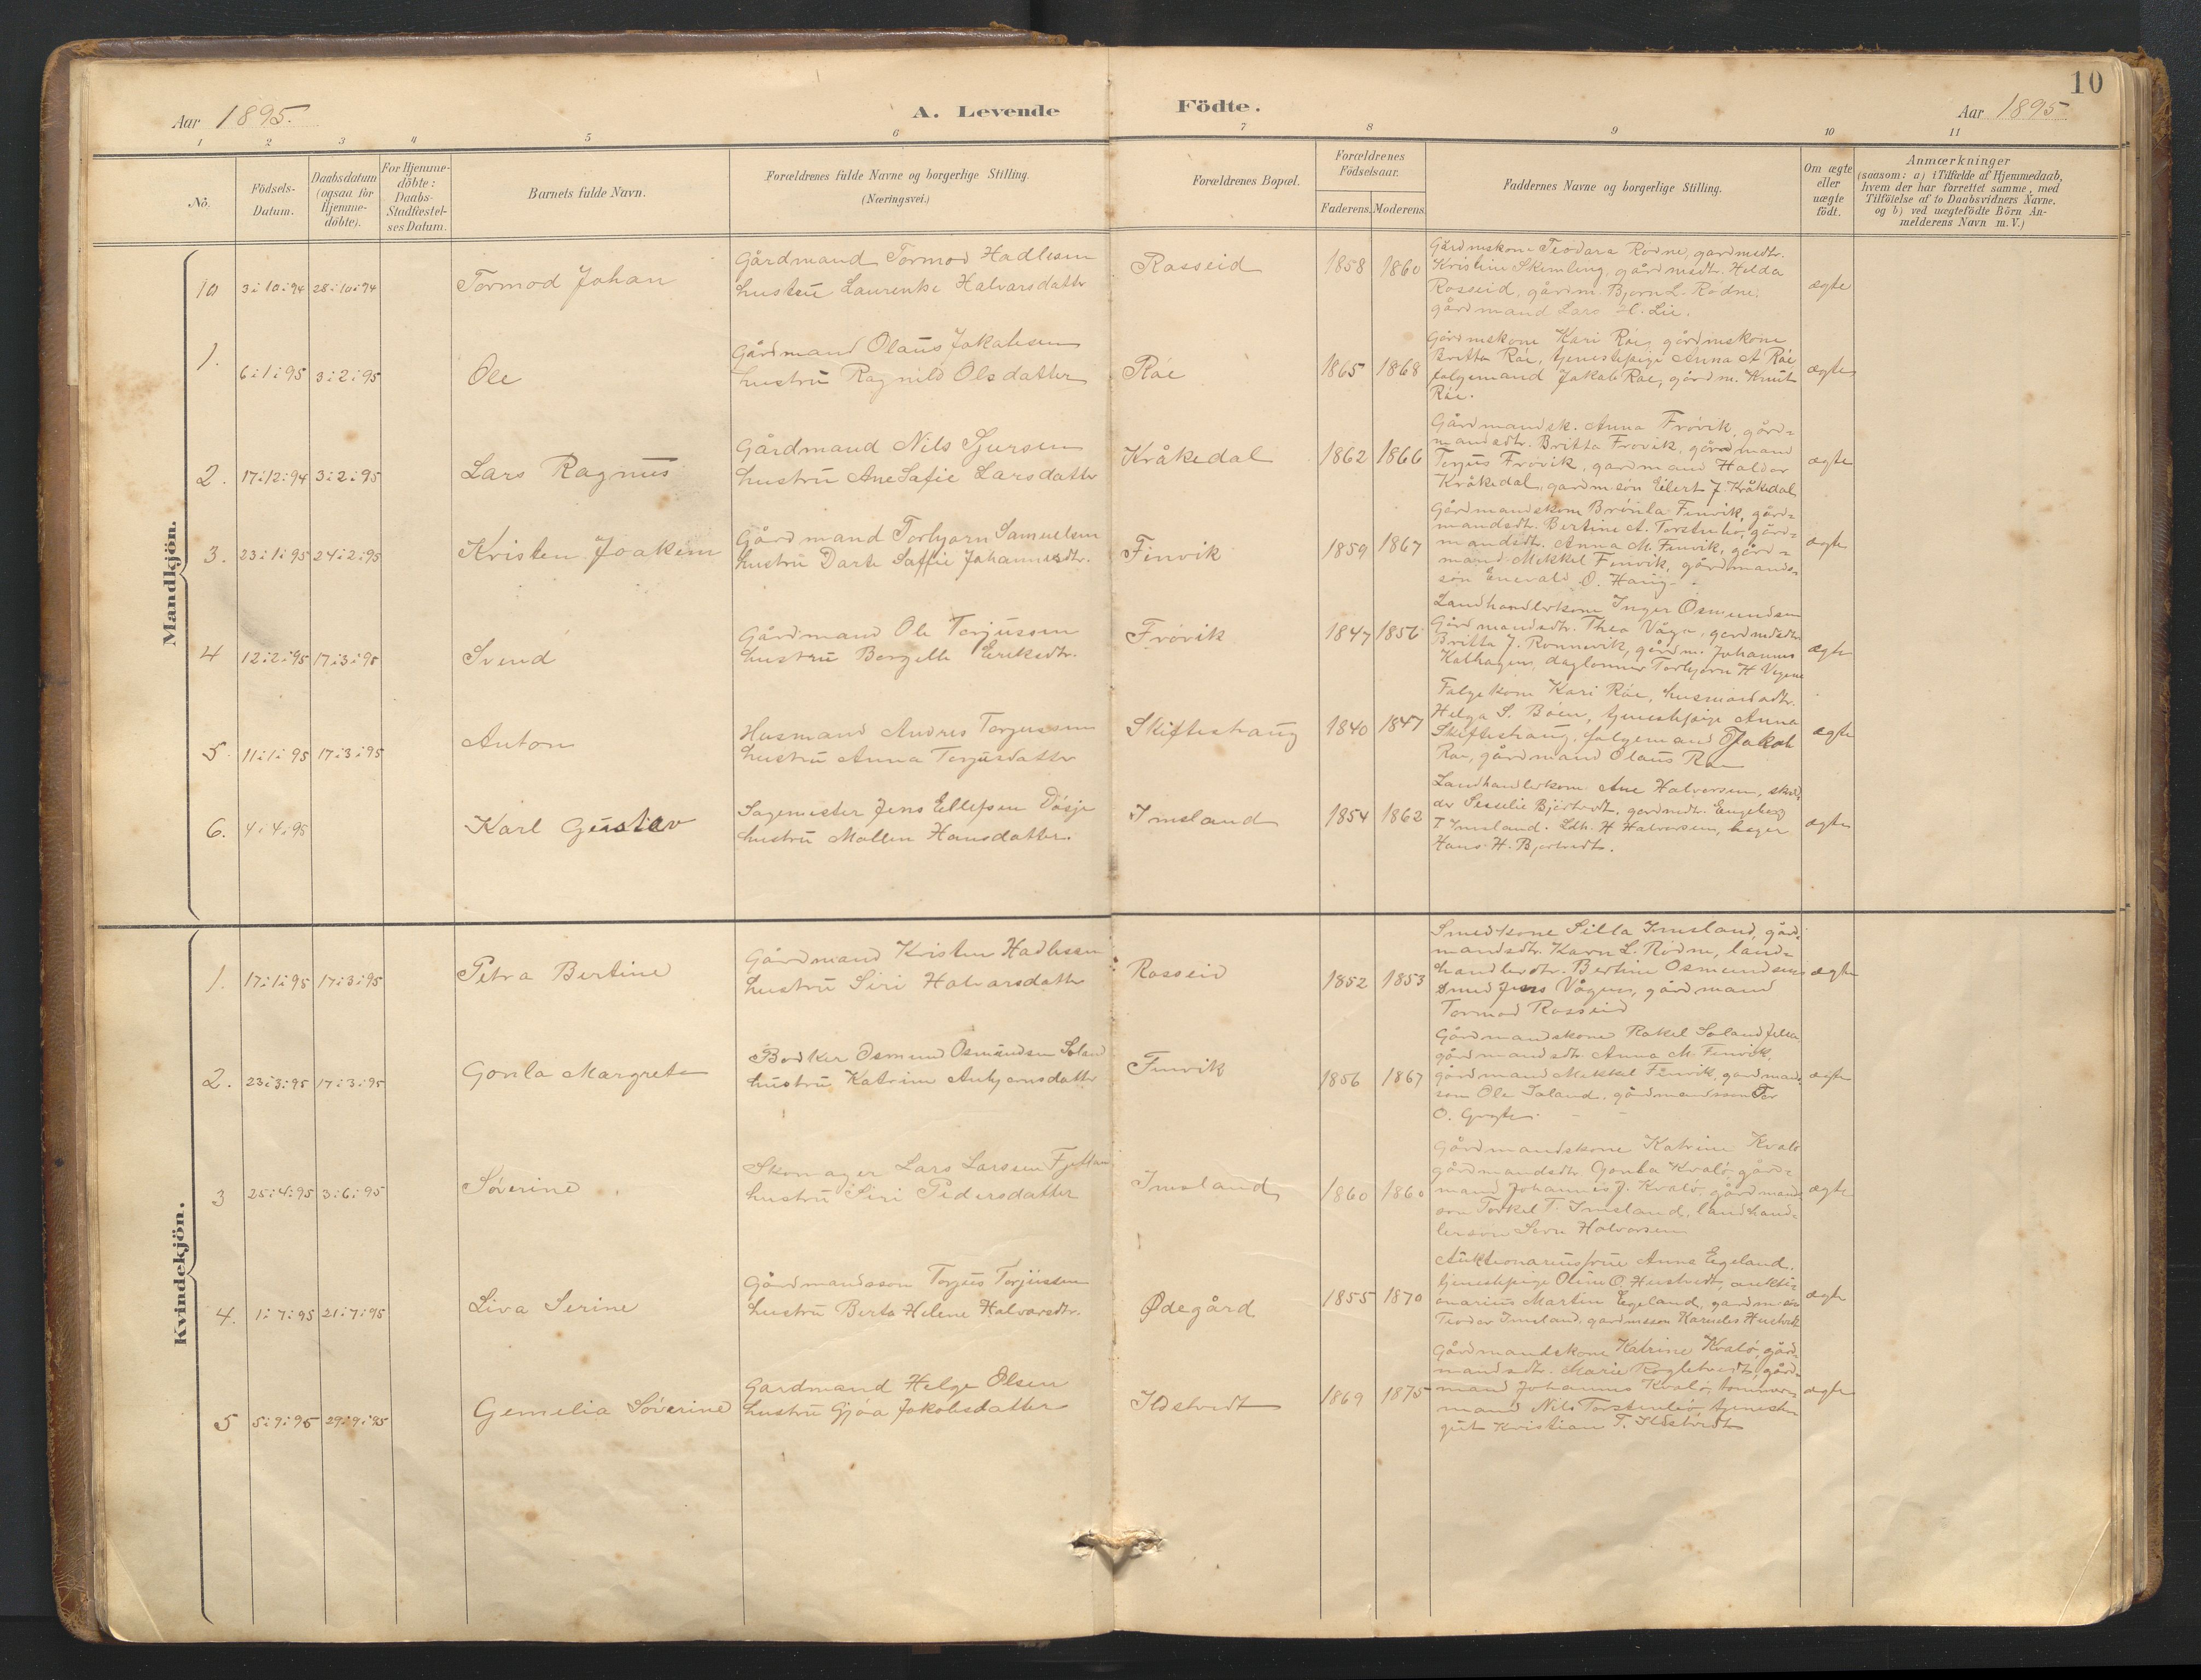 10
Aar 1895.
A. Levende
Födte.
Aar 1895
1 2 3 4 5 6 7 8 9 10 11
No.
Födsels-
Datum.
Daabsdatum
(ogsaa for
Hjemme-
döbte).
For Hjemme-
döbte:
Daabs-
Stadfæstel-
ses Datum.
Barnets fulde Navn.
Forældrenes fulde Navne og borgerlige Stilling.
(Næringsvei.)
Forældrenes Bopæl.
Forældrenes
Födselsaar.
Faderens. Moderens.
Faddernes Navne og borgerlige Stilling.
Om ægte
eller
uægte
födt.
Anmærkninger
(saasom: a) i Tilfælde af Hjemmedaab,
hvem der har forrettet samme, med
Tilföielse af to Daabsvidners Navne.
og b) ved uægtefödte Börn An-
melderens Navn m. V.)
Mandkjön.
10 3:10:94 28:10:94
Tormod Johan
Gårdmand Tormod Hadlesen
hustru Laurentse Halvarsdatter
Rosseid
1858 1860
Gårdmskone Teodara Rødne, gardmdtr.
Kristine Skimleng, gårdmdtr. Helda
Rosseid, gårdm. Bjørn L. Rødne,
gårdmand Lars H. Lie.
ægte
1. 6:1:95 3:2:95
Ole
Gårdmand Olaus Jakabsen
hustru Ragnild Olsdatter
Råe
1865 1868
Gårdmskone Kari Råe, gårdmskone
Britta Råe, tjenestepige Anna A Råe
følgemand Jakab Råe, gårdm. Knut
Råe.
ægte
2. 17:12:94 3:2:95
Lars Ragnus
Gårdmand Nils Sjursen
hustru Ane Safie Larsdatter
Kråkedal
1862 1866
Gårdmandsk. Anna Frøvik, gård=
mandsdtr. Britta Frøvik, gårdmand
Torjus Frøvik, gardmand Haldor
Kråkedal, gardm.søn Eilert J. Kråkedal
ægte
3. 23:1:95 24:2:95
Kristen Joakim
Gårdmand Torbjørn Samuelsen
hustru Darte Saffie Johannesdtr.
Finvik
1859 1867
Gårdmandskone Brønla Finvik, gård=
mandsdtr. Bertine A. Torstenbø, gård=
mandsdtr. Anna M. Finvik, gård=
mand Mekkel Finvik, gårdmands=
søn Enevald O. Haug.
ægte
4 12:2:95 17:3:95
Svend
Gårdmand Ole Torjussen
hustru Borgelle Eriksdtr.
Frøvik
1847 1856
Landhandlerkone Inger Osmundsen
Gårdmandsdtr. Thea Våga, gardmdsdtr.
Britta J. Rønnevik, gårdm. Johannes
Kalhagen, dagløner Torbjørn H Vegene
ægte
5. 11:1:95 17:3:95
Anton
Husmand Andres Torjussen
hustru Anna Torjusdatter
Skifteshaug
1840 1847
Følgekone Kari Råe, husmandsdtr.
Helga S. Bøen, tjenestepige Anna
Skifteshaug, følgemand Jakob
Råe, gårdmand Olaus Råe
ægte
6. 4:4:95
Karl Gustav
Sagemester Jens Ellefsen Døsje
hustru Mallen Hansdatter.
Imsland
1854 1862
Landhandlerkone Ane Halvorsen,
Sesselie Bjertvedt, gardmdtr. Engeborg
T Imsland. Ldh. H Halvorsen, bager
Hans H. Bjertvedt.
ægte
Kvindekjön.
1. 17:1:95 17:3:95
Petra Bertine
Gårdmand Kristen Hadlesen
hustru Siri Halvarsdatter
Rosseid
1852 1853
Smedkone Silla Imsland, gård=
mandsdtr. Karn L. Rødne, land=
handlerdtr. Bertine Osmundsen
smed Jens Vågen, gårdmand
Tormod Rosseid
ægte
2. 23:3:95 17:3:95
Gonla Margrete
Bødker Osmund Osmundsen Soland
hustru Katrine Anbjørnsdatter
Finvik
1856 1867
Gårdmandskone Rakel Soland Jelsa
gårdmandsdtr. Anna M. Finvik,
gårdmand Mekkel Finvik, gardmands=
søn Ole Soland, gårdmandssøn Tor
O.
ægte
3 25:4:95 3:6:95
Søverine
Skomager Lars Larsen
hustru Siri Pedersdatter
Imsland
1860 1860
Gårdmandskone Katrine Kvalø
gårdmandsdtr Gonla Kvalø, gård=
mand Johannes J. Kvalø, gårdmands
søn Torkel T. Imsland, landhand=
lersøn Søvn Halvorsen
ægte
4. 1:7:95 21:7:95
Liva Serine
Gårdmandssøn Torjus Torjussen
hustru Berta Helene Halvorsdtr.
Ødegård
1855 1870
Auktionariusfrue Anna Egeland.
tjenestepige Oline O. Hustvedt, aukti=
onarius Martin Egeland, gardm.søn
Teodor Imsland, gardmssøn Karnelis Hustvedt
ægte
5 5:9:95 29:9:95
Gemelia Søverine
Gardmand Helge Olsen
hustru Gjøa Jakobsdatter
Ildstvedt
1869 1875
Gårdmandskone Katrine Kvalø, gård=
mandsdtr. Marie Rogletvedt, gård=
mand Johannes Kvalø, tømmer=
mand Nils Torstenbø, tjeneste=
gut Kristian T. Ildstvedt
ægte